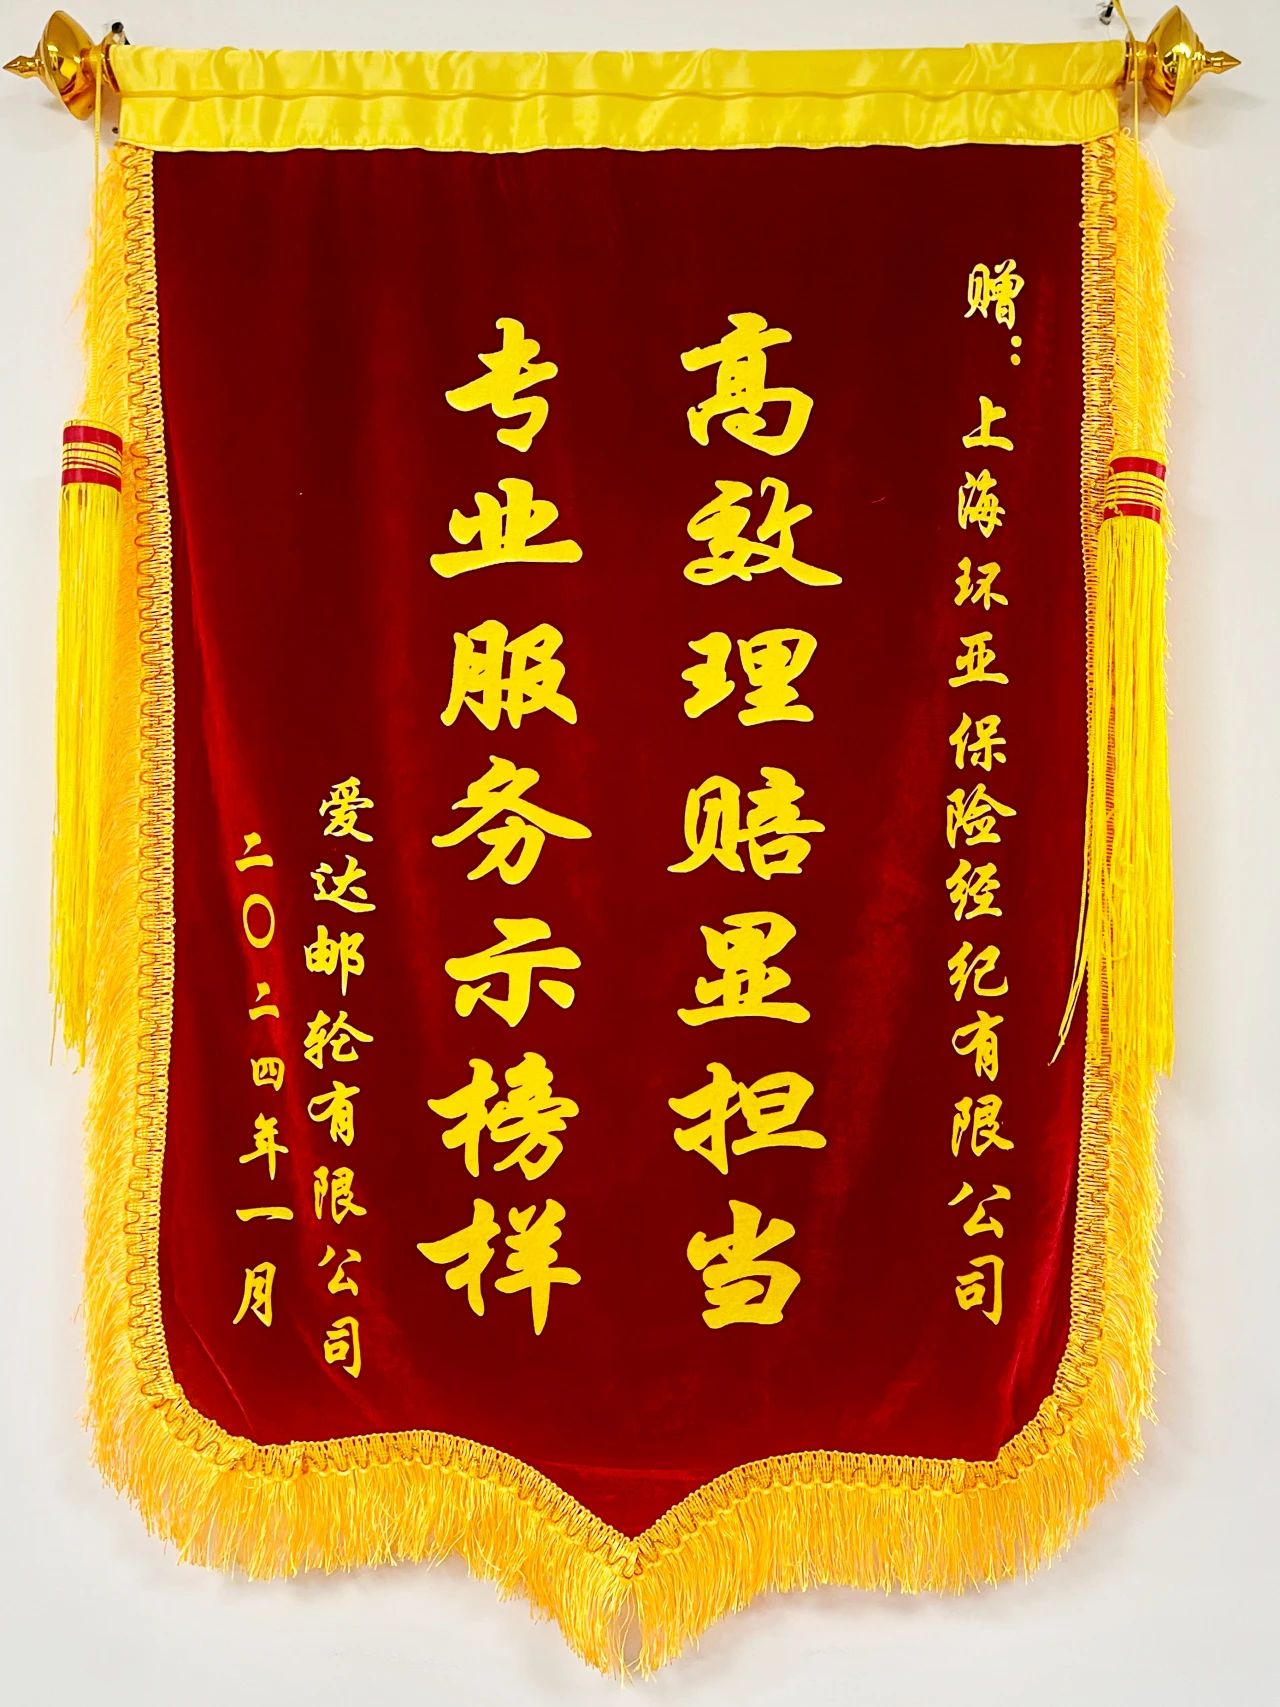 赠：上海环亚保险经纪有限公司
高效理赔显担当
专业服务示榜样
爱达邮轮有限公司
二〇二四年一月